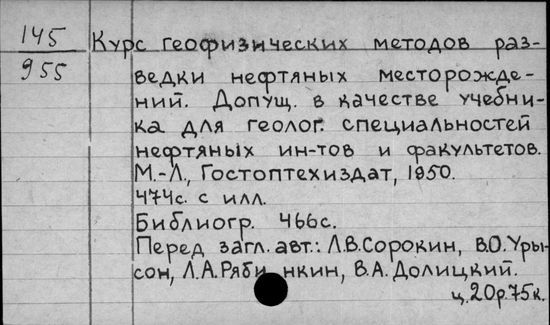 145
955
Курс геофизических методов раз-
ведки нефтяных месторожде-
ний. Допущ. в качестве учебни-
ка для геолог. специальностей
нефтяных ин-тов и факультетов.
М.-Л., Гостоптехиздат, 1950.
474с. с илл.
Библиогр. 466с.
Перед загл. авт.: Л.В.Сорокин, В.О.Уры-
сон, Л.А.Ряби нкин, В.А.Долицкий.
ц.20р.75к.